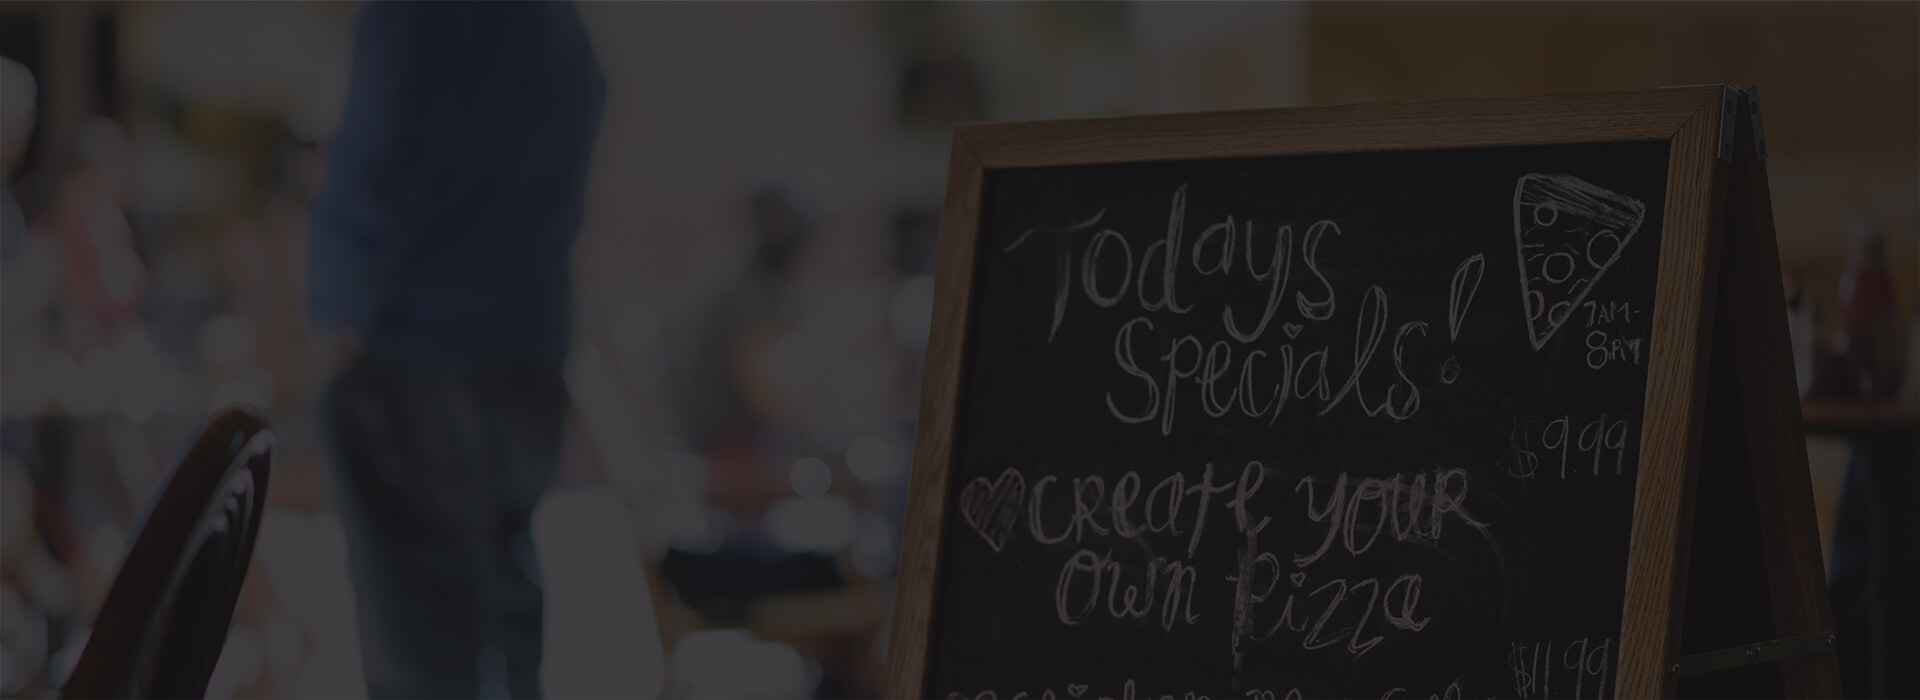 Todays
Specials!
7AM-
8PM
$9.99
Create your
own Pizza
$11.99